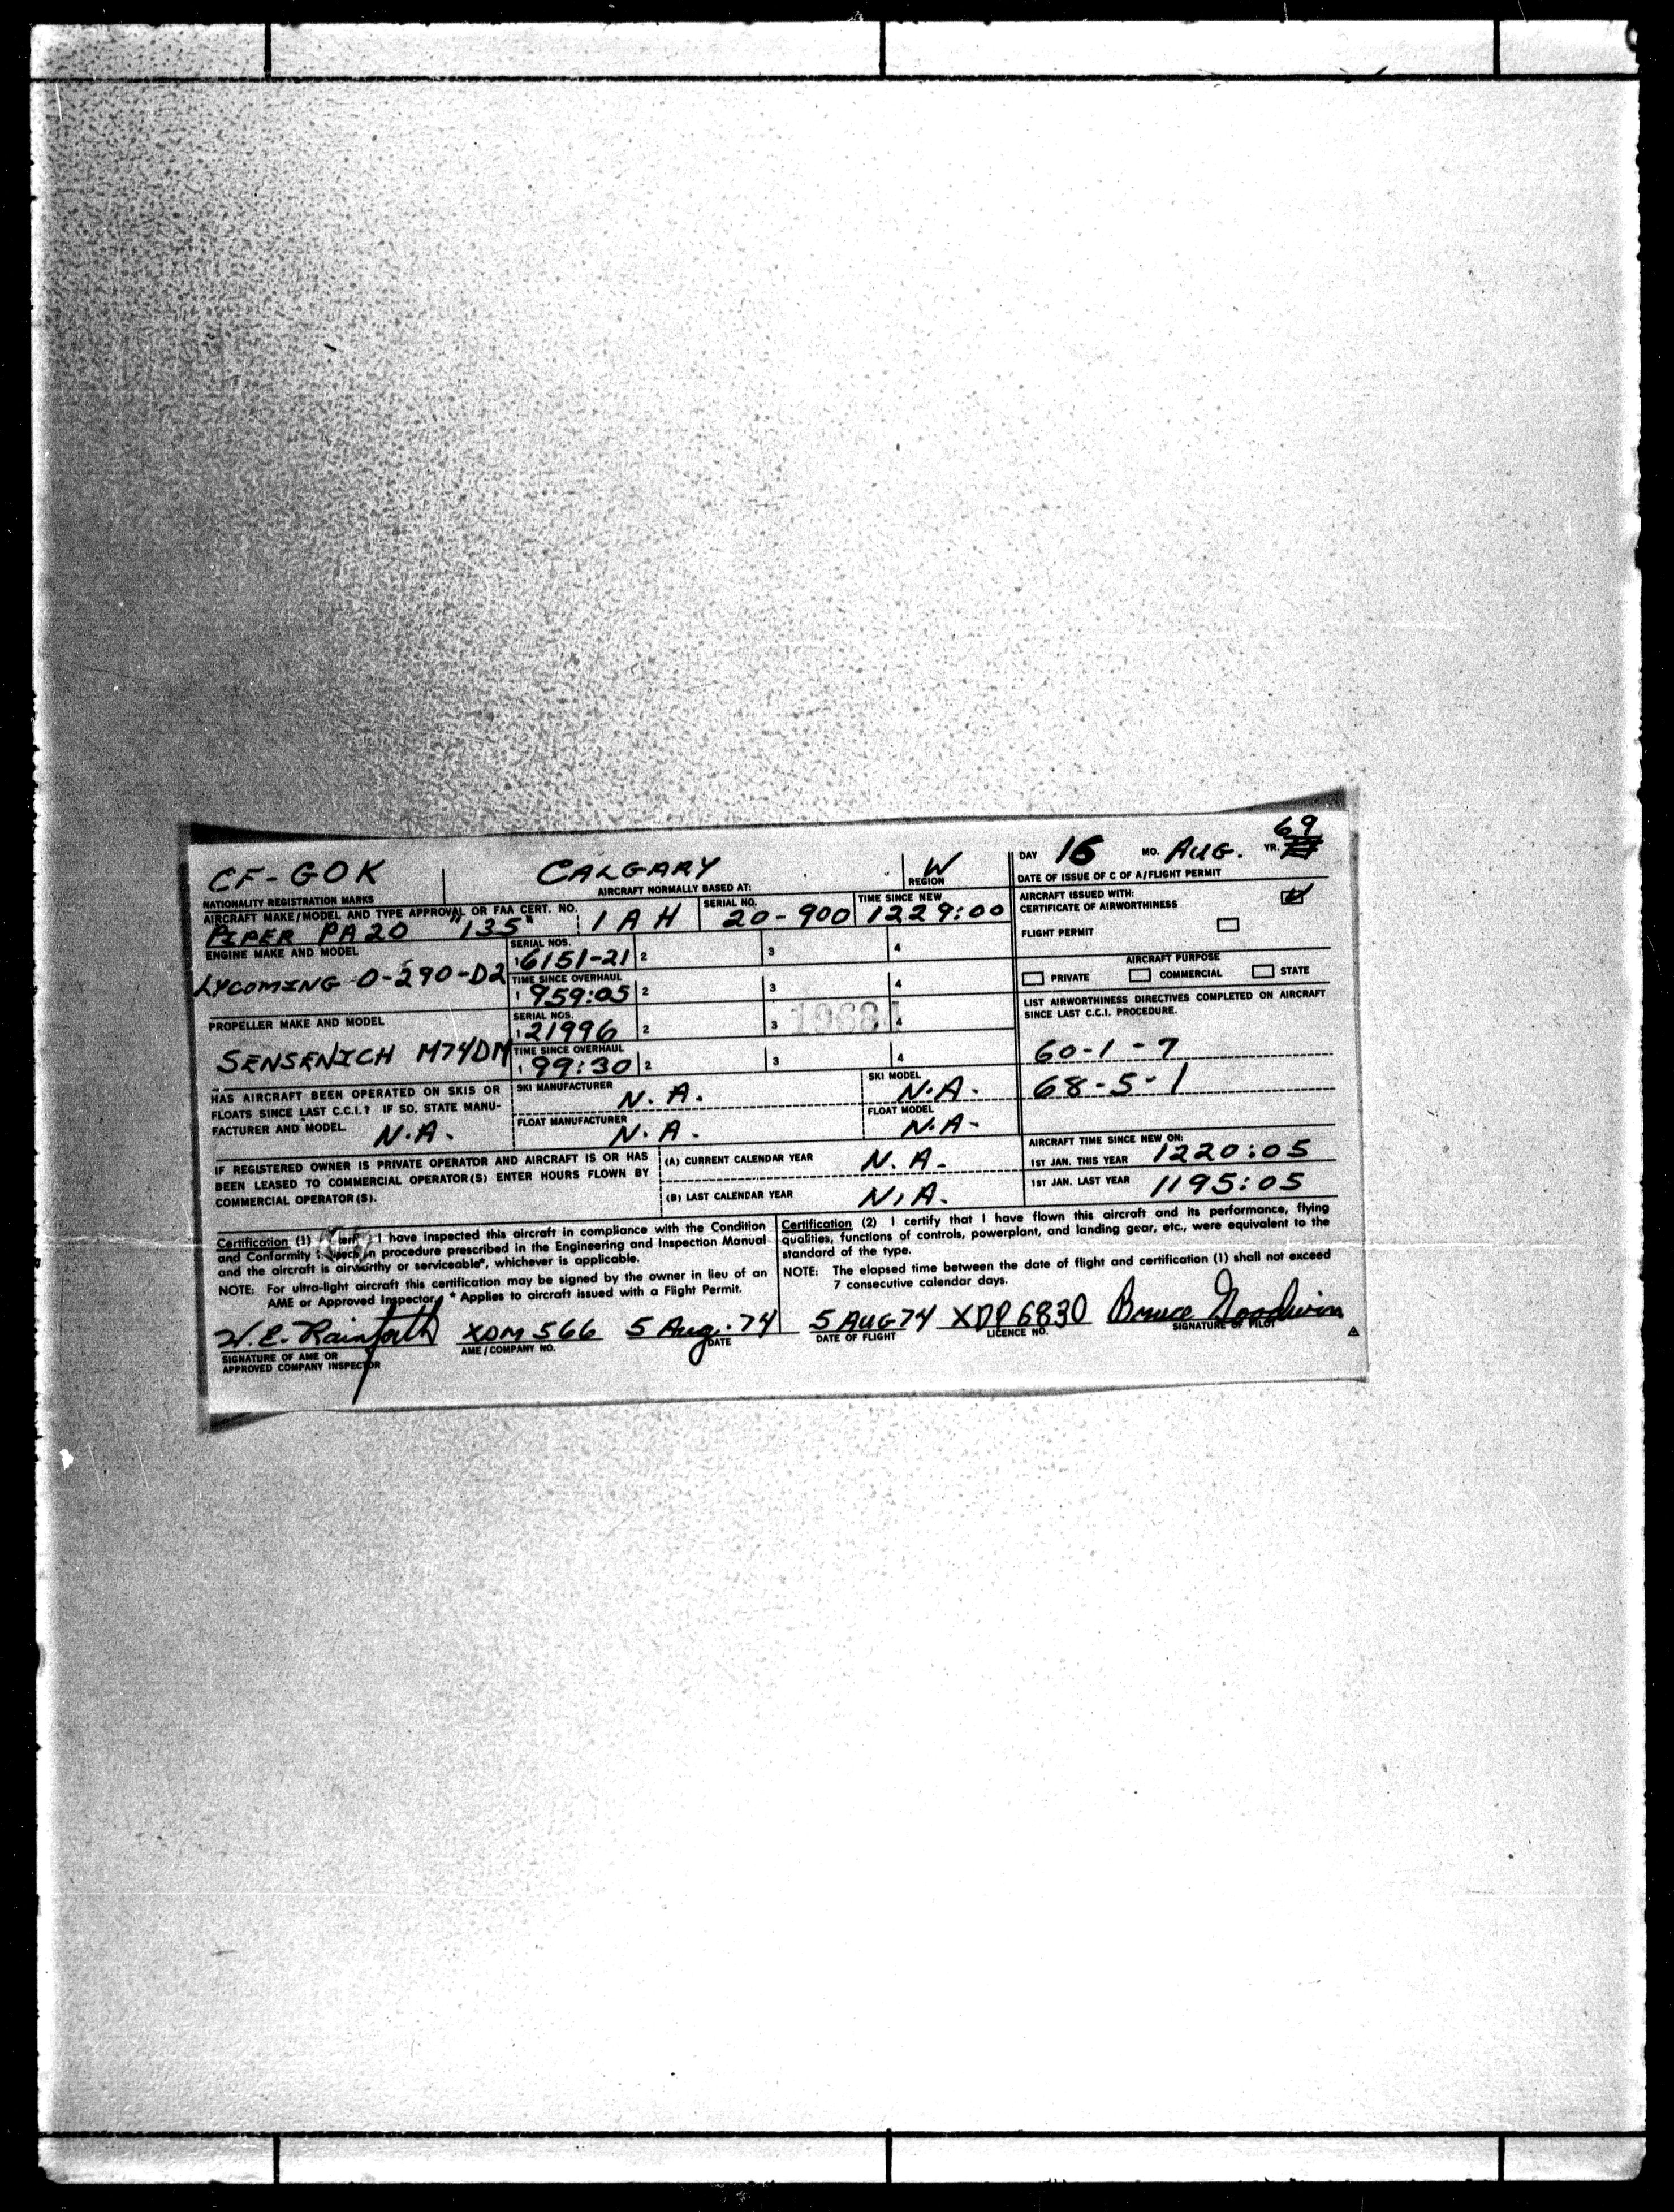 CF-GOK CALGARY W DAY 16 MO. AUG. YR. 69
NATIONALITY REGISTRATION MARKS AIRCRAFT NORMALLY BASED AT: REGION DATE OF ISSUE OF C OF A/FLIGHT PERMIT
AIRCRAFT MAKE/MODEL AND TYPE APPROVAL OR FAA CERT. NO. SERIAL NO. TIME SINCE NEW
PIPER PA20 "135" 1AH 20-900 1229:00
AIRCRAFT ISSUED WITH:
CERTIFICATE OF AIRWORTHINESS
FLIGHT PERMIT
ENGINE MAKE AND MODEL SERIAL NOS.
LYCOMING O-290-D2 1 6151-21 2 3 4
TIME SINCE OVERHAUL
1 959:05 2 3 4
AIRCRAFT PURPOSE
PRIVATE COMMERCIAL STATE
PROPELLER MAKE AND MODEL SERIAL NOS.
SENSENICH M74DM 1 21996 2 3 4
TIME SINCE OVERHAUL
1 99:30 2 3 4
LIST AIRWORTHINESS DIRECTIVES COMPLETED ON AIRCRAFT
SINCE LAST C.C.I. PROCEDURE.
60-1-7
68-5-1
HAS AIRCRAFT BEEN OPERATED ON SKIS OR
FLOATS SINCE LAST C.C.I.? IF SO, STATE MANU-
FACTURER AND MODEL. N.A.
SKI MANUFACTURER N.A. SKI MODEL N.A.
FLOAT MANUFACTURER N.A. FLOAT MODEL N.A.
IF REGISTERED OWNER IS PRIVATE OPERATOR AND AIRCRAFT IS OR HAS
BEEN LEASED TO COMMERCIAL OPERATOR(S) ENTER HOURS FLOWN BY
COMMERCIAL OPERATOR(S).
(A) CURRENT CALENDAR YEAR N.A.
(B) LAST CALENDAR YEAR N.A.
AIRCRAFT TIME SINCE NEW ON:
1ST JAN. THIS YEAR 1220:05
1ST JAN. LAST YEAR 1195:05
Certification (1) I have inspected this aircraft in compliance with the Condition
and Conformity in procedure prescribed in the Engineering and Inspection Manual
and the aircraft is airworthy or serviceable*, whichever is applicable.
NOTE: For ultra-light aircraft this certification may be signed by the owner in lieu of an
AME or Approved Inspector. * Applies to aircraft issued with a Flight Permit.
W.E. Rainforth XDM 566 5 Aug. 74
SIGNATURE OF AME OR
APPROVED COMPANY INSPECTOR AME/COMPANY NO. DATE
Certification (2) I certify that I have flown this aircraft and its performance, flying
qualities, functions of controls, powerplant, and landing gear, etc., were equivalent to the
standard of the type.
NOTE: The elapsed time between the date of flight and certification (1) shall not exceed
7 consecutive calendar days.
5 AUG 74 XDP 6830 Bruce Goodwin
DATE OF FLIGHT LICENCE NO. SIGNATURE OF PILOT